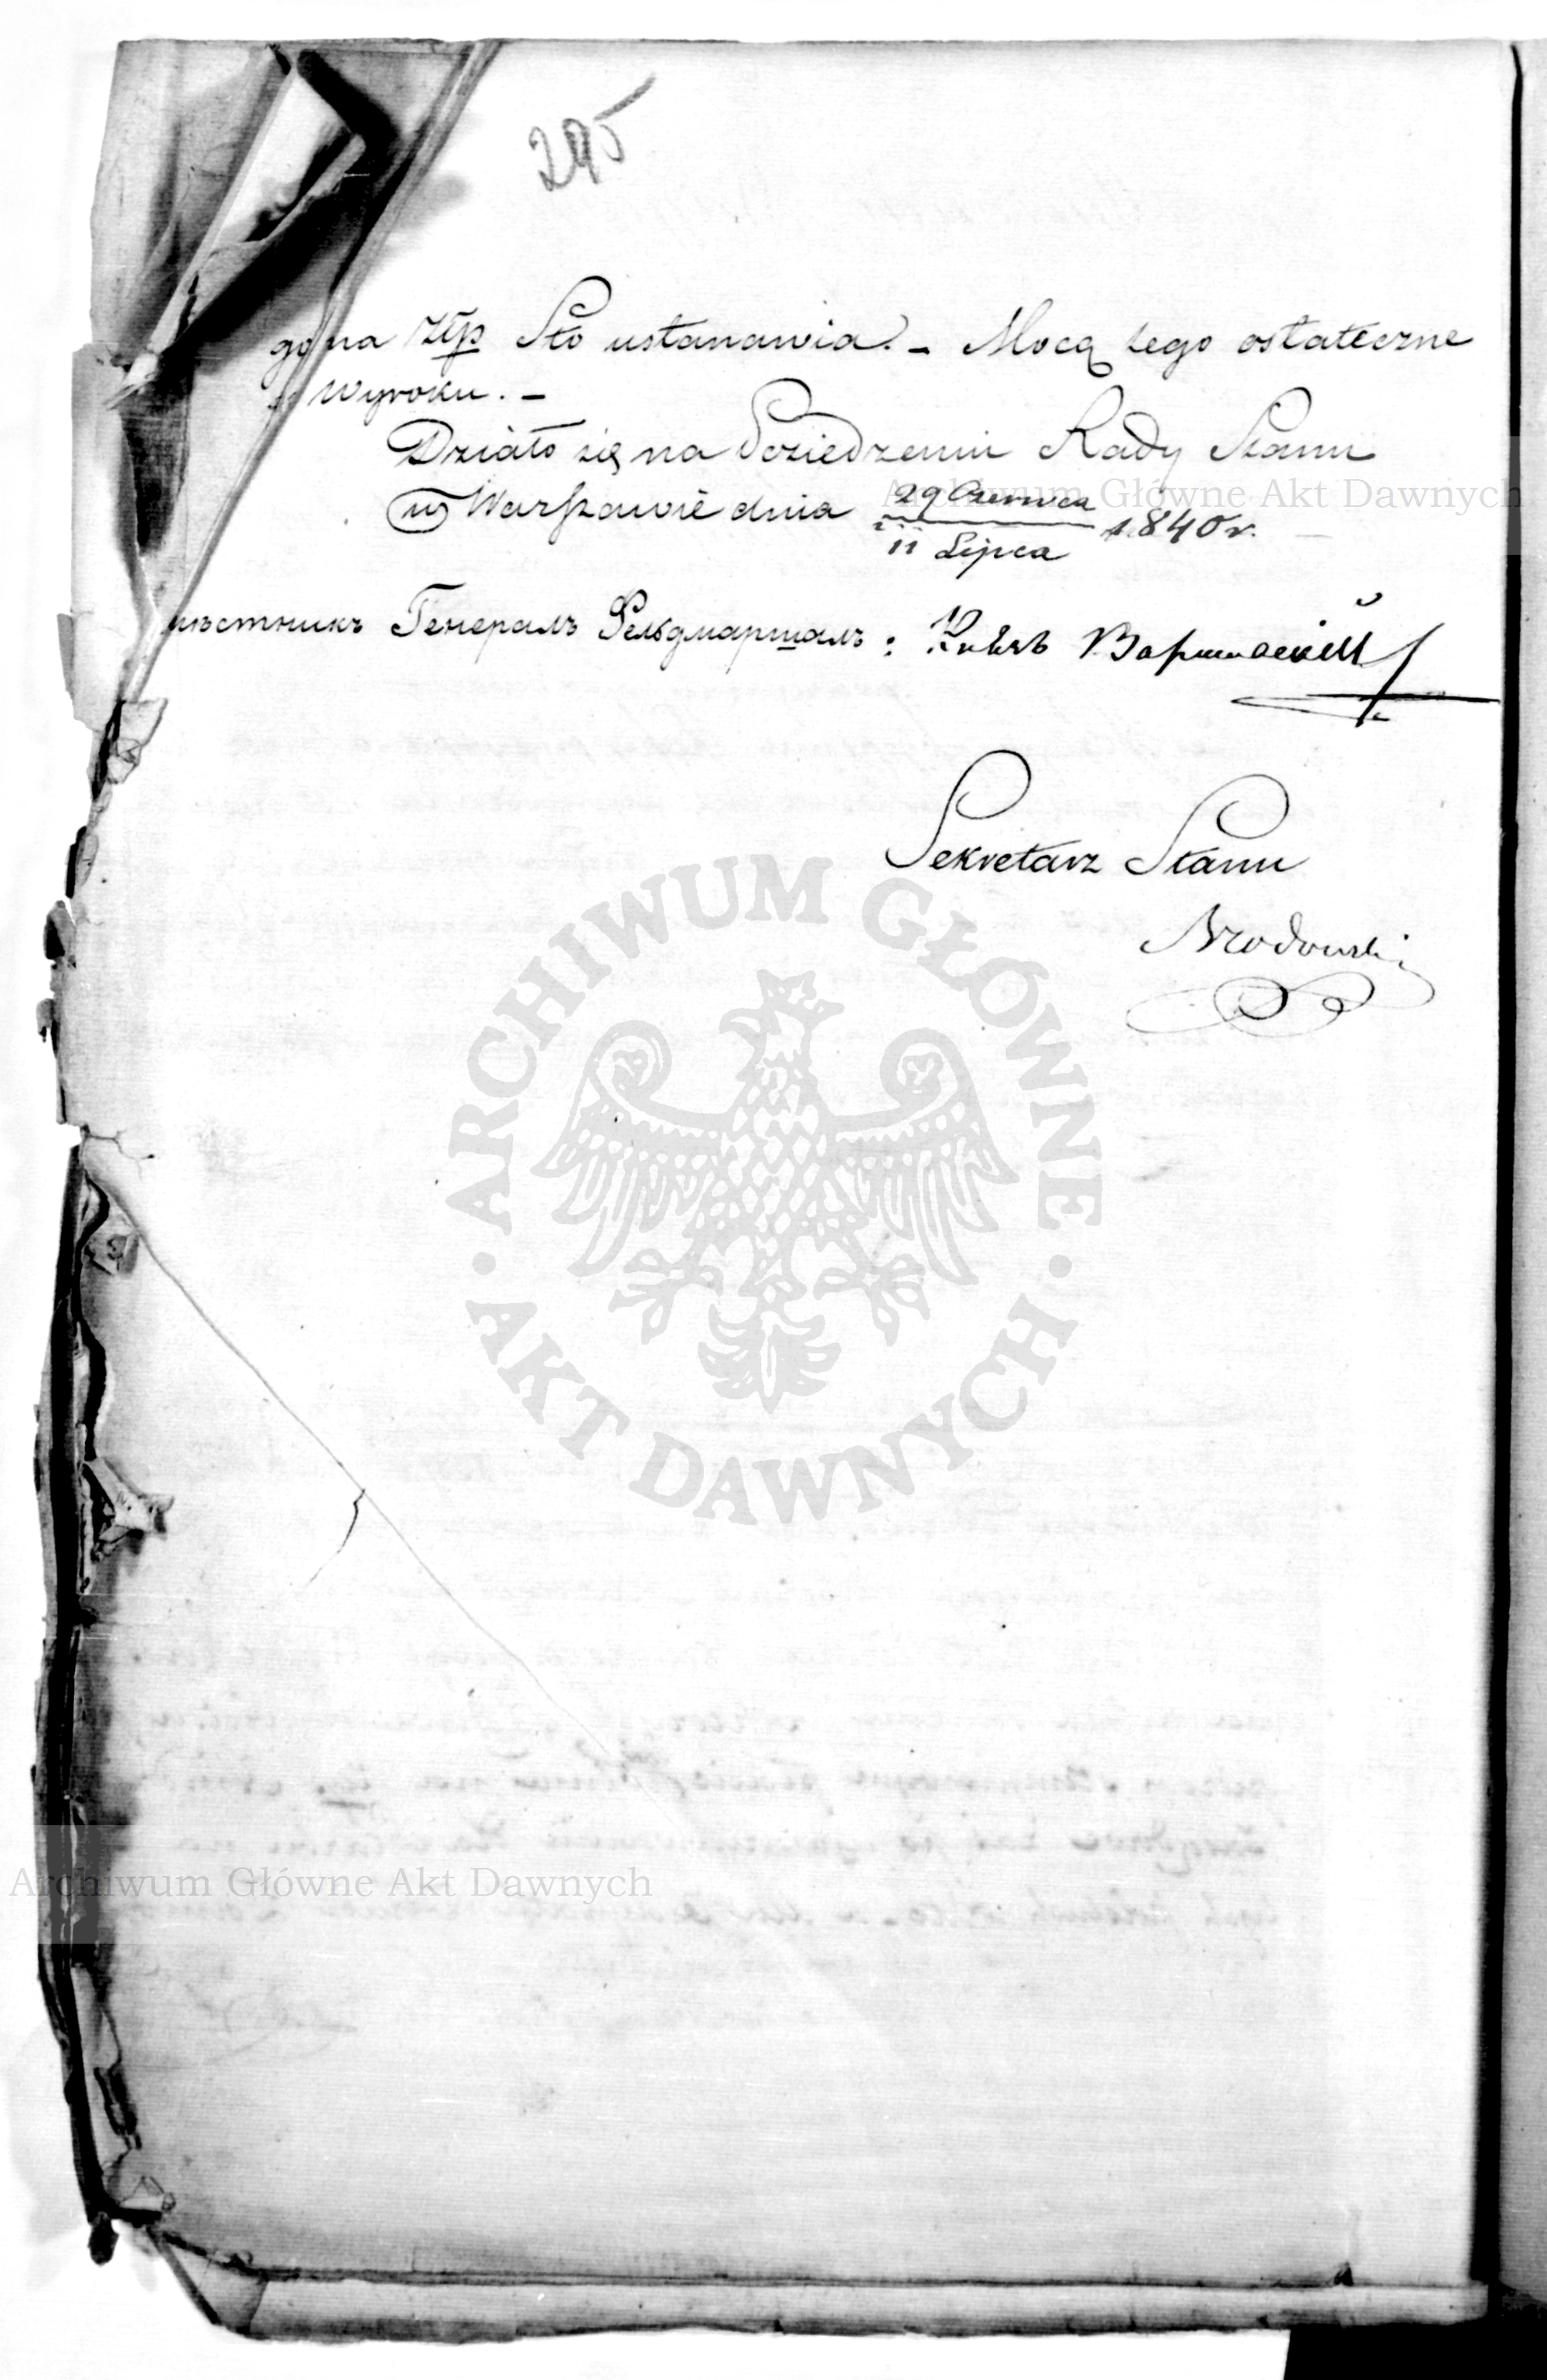 295
go na złp Sto ustanawia. – Mocą tego ostateczne
Wyroku. –
Działo się na Posiedzeniu Rady Stanu
w Warszawie dnia 29 Czerwca / 11 Lipca 1840 r.
мѣстникъ Генералъ Фельдмаршалъ: Князь Варшавскій
Sekretarz Stanu
Brzodowski
ARCHIWUM GŁÓWNE AKT DAWNYCH
Archiwum Główne Akt Dawnych
Archiwum Główne Akt Dawnych